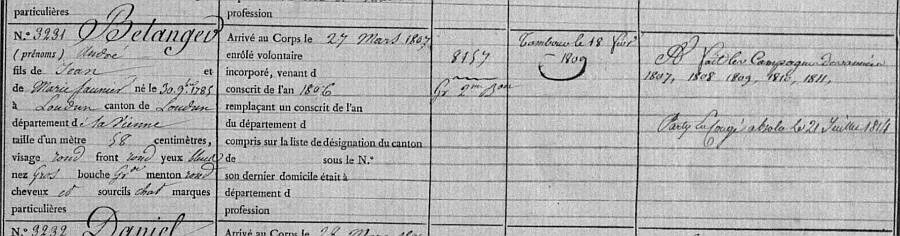 particulières
profession
N.° 3231 Betanger
(prénoms) André
fils de Jean et
de Marie Jaunier né le 30 9bre 1785
à Loudun canton de Loudun
département de la Vienne
taille d'un mètre 58 centimètres,
visage rond front rond yeux bleus
nez Gros bouche Gde menton rond
cheveux et sourcils chat marques
particulières
Arrivé au Corps le 27 Mars 1807
enrôlé volontaire
incorporé, venant d
conscrit de l'an 1806
remplaçant un conscrit de l'an
du département d
compris sur la liste de désignation du canton
de sous le N.°
son dernier domicile était à
département d
profession
8157
Gr 2me Bon
Tambour le 18 Févr
1809
A fait les Campagnes
1807, 1808 1809, 1810, 1811,
Party En Congé absolu le 21 Juillet 1814
N.° 3232 Daniel
Arrivé au Corps le 28 Mars